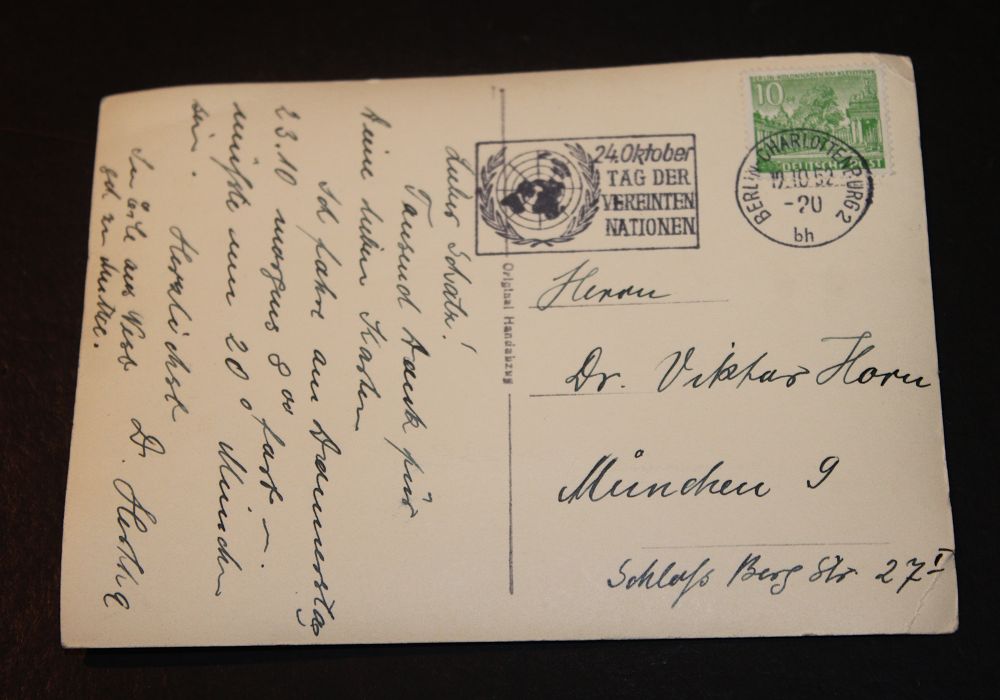 Lieber Schatz!
Tausend Dank für
Deine lieben Karten
Ich fahre am Donnerstag
23.10 morgens 8 00 fort –
müßte um 20 0 München
sein.
Herzlichst
D. Hertha
In Eile aus
24. Oktober
TAG DER
VEREINTEN
NATIONEN
Original Handabzug
BERLIN-KOLONNADEN AM KLEISTPARK
10
DEUTSCHE POST
BERLIN-CHARLOTTENBURG 2
19.10.52.
-20
bh
Herrn
Dr. Viktor Horn
München 9
Schloß Berg Str 27 I